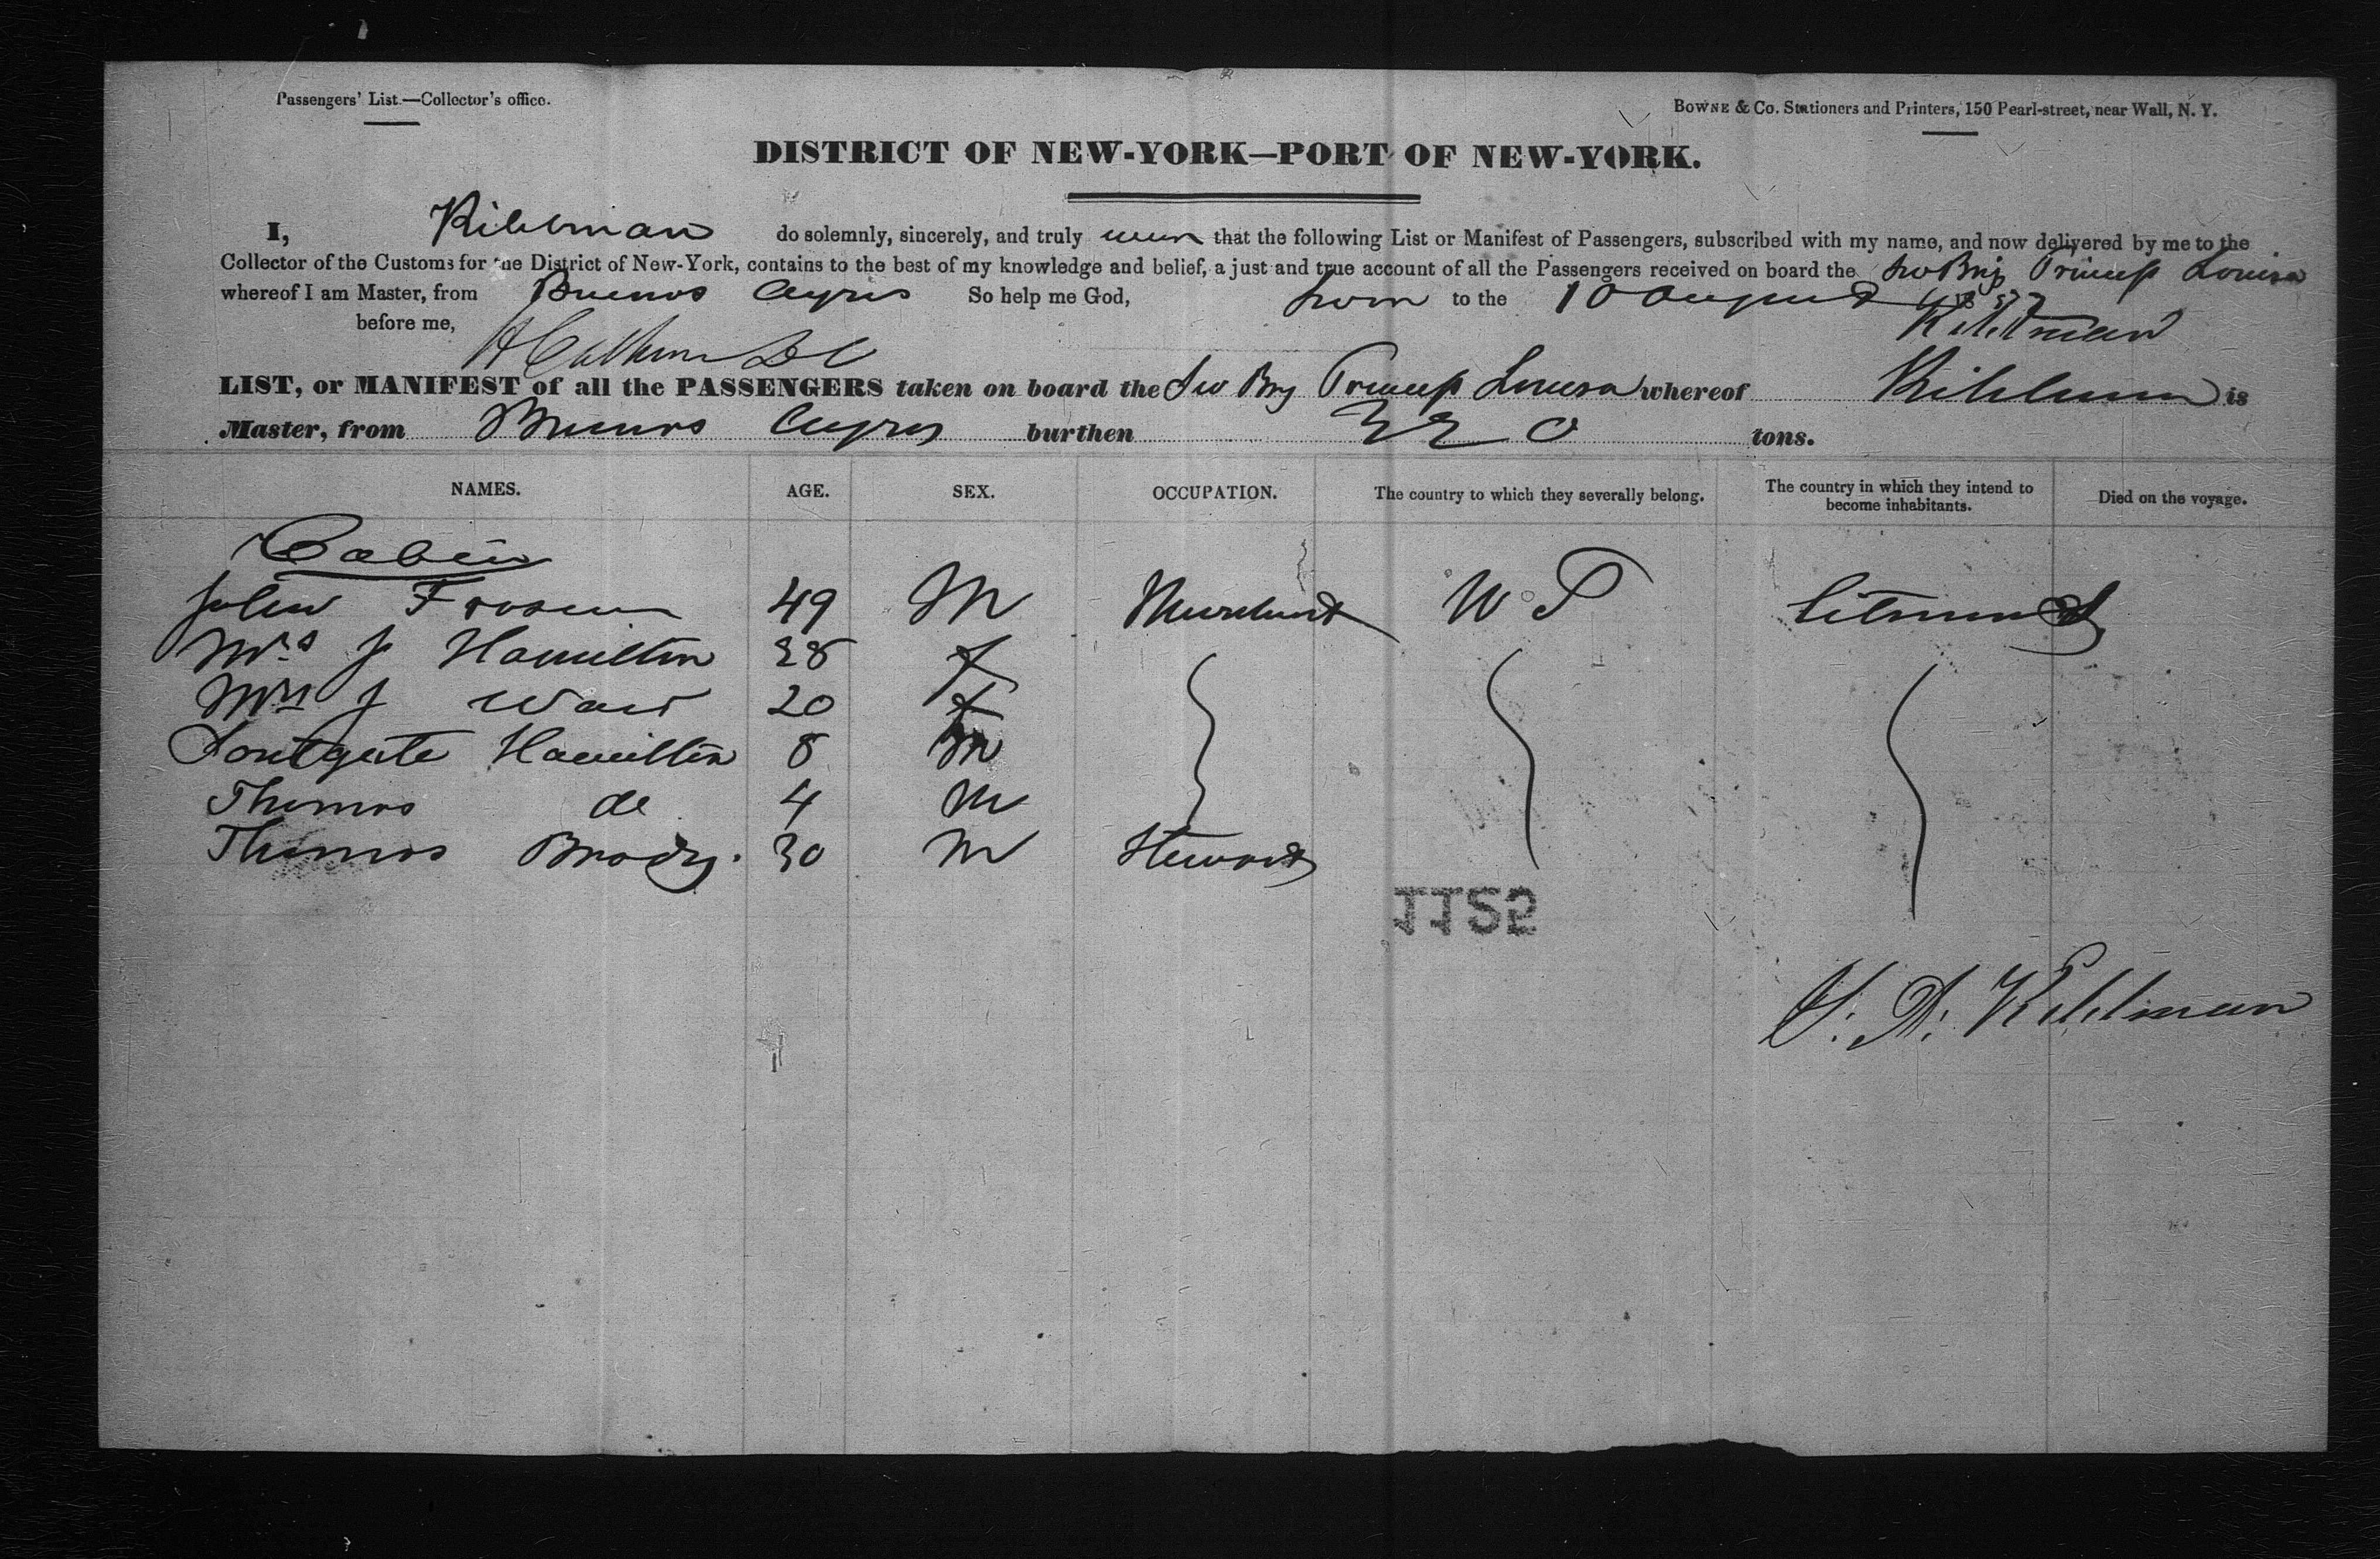 Passengers' List.—Collector's office.
Bowne & Co. Stationers and Printers, 150 Pearl-street, near Wall, N. Y.
DISTRICT OF NEW-YORK—PORT OF NEW-YORK.
I, Kihlman do solemnly, sincerely, and truly that the following List or Manifest of Passengers, subscribed with my name, and now delivered by me to the
Collector of the Customs for the District of New-York, contains to the best of my knowledge and belief, a just and true account of all the Passengers received on board the Sw Brig Louisa
whereof I am Master, from Buenos Ayres So help me God, Sworn to the 10 August
before me, Kihlman
LIST, or MANIFEST of all the PASSENGERS taken on board the Sw Brg Louisa whereof Kihlman is
Master, from Buenos Ayres burthen 220 tons.
NAMES. AGE. SEX. OCCUPATION. The country to which they severally belong. The country in which they intend to become inhabitants. Died on the voyage.
Cabin
John 49 M Merchant
Mrs J Hamilton 28 f
J Ward 20 f
Southgate Hamilton 8 M
Thomas do 4 M
Thomas Brody. 30 M Steward
1125
Kihlman